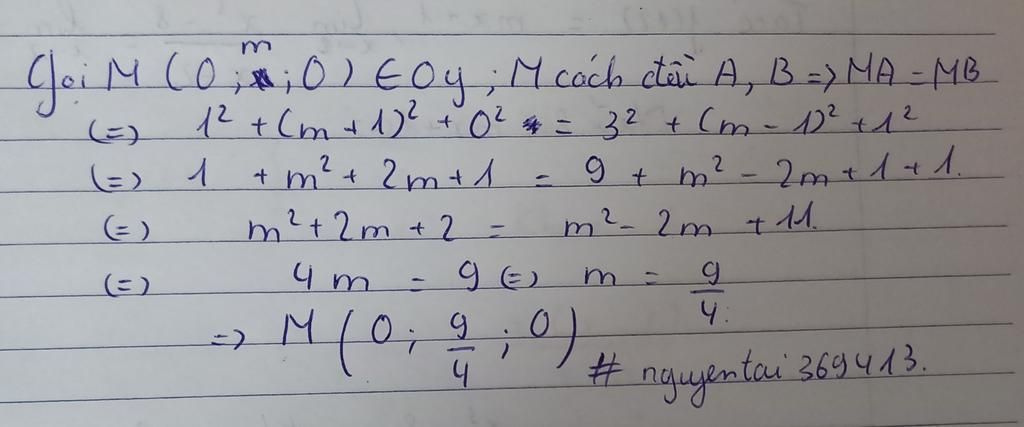 Gọi M (0 ; m ; 0) ∈ Oy ; M cách đều A, B => MA = MB
(=) 1² + (m + 1)² + 0² = 3² + (m - 1)² + 1²
(=) 1 + m² + 2m + 1 = 9 + m² - 2m + 1 + 1.
(=) m² + 2m + 2 = m² - 2m + 11.
(=) 4m = 9 (=) m = 9/4.
=> M (0 ; 9/4 ; 0) # nguyentai369413.